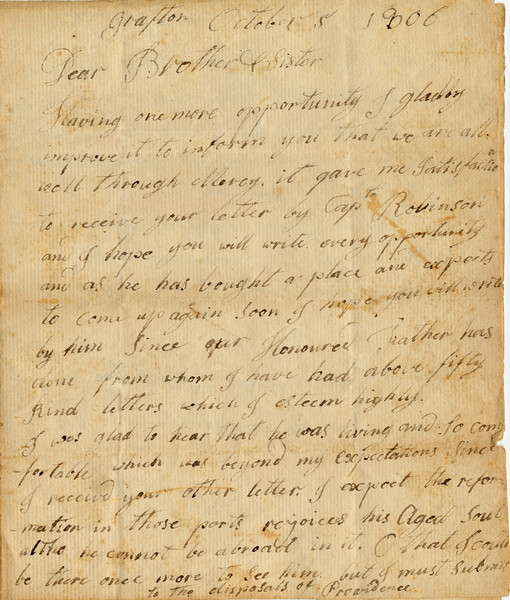 Grafton October 5 1806
Dear Brother & Sister
Having one more opportunity I gladly
improve it to inform you that we are all
well through Mercy. it gave me Satisfaction
to receive your letter by Capt Robinson
and I hope you will write every opportunity
and as he has bought a place and expects
to come up again soon I hope you will write
by him Since our Honoured Father has
done from whom I have had above fifty
kind letters which I esteem highly.
I was glad to hear that he was living and So com
fortable which was beyond my expectations Since
I receivd your other letter. I expect the refor
-mation in those parts rejoices his Aged Soul
altho he cannot be abroad in it. O that I could
be there once more to See him but I must Submit
to the disposals of Providence